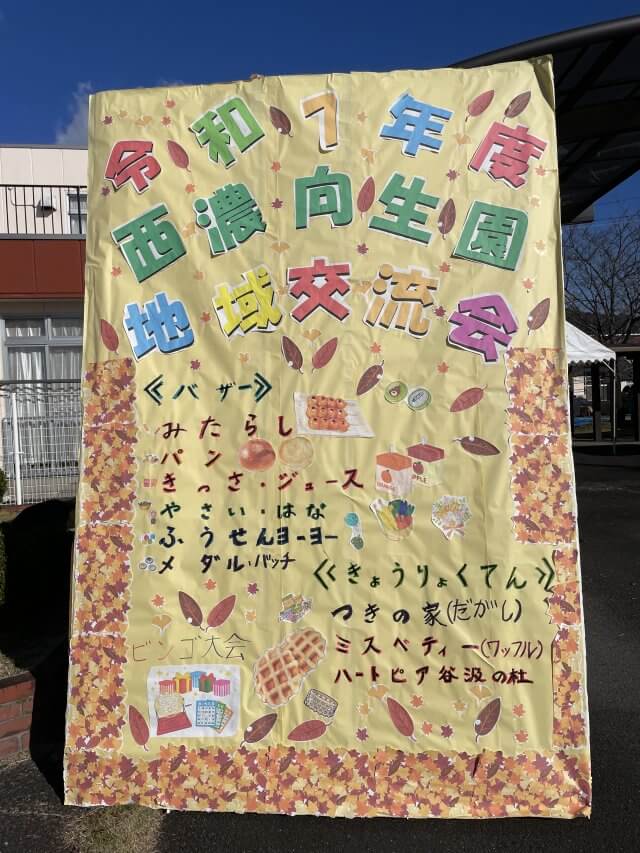 令和7年度
西濃向生園
地域交流会
≪バザー≫
みたらし
パン
きっさ・ジュース
やさい・はな
ふうせんヨーヨー
メダル・バッチ
≪きょうりょくてん≫
つきの家(だがし)
ミスベティー(ワッフル)
ハートピア谷汲の杜
ビンゴ大会